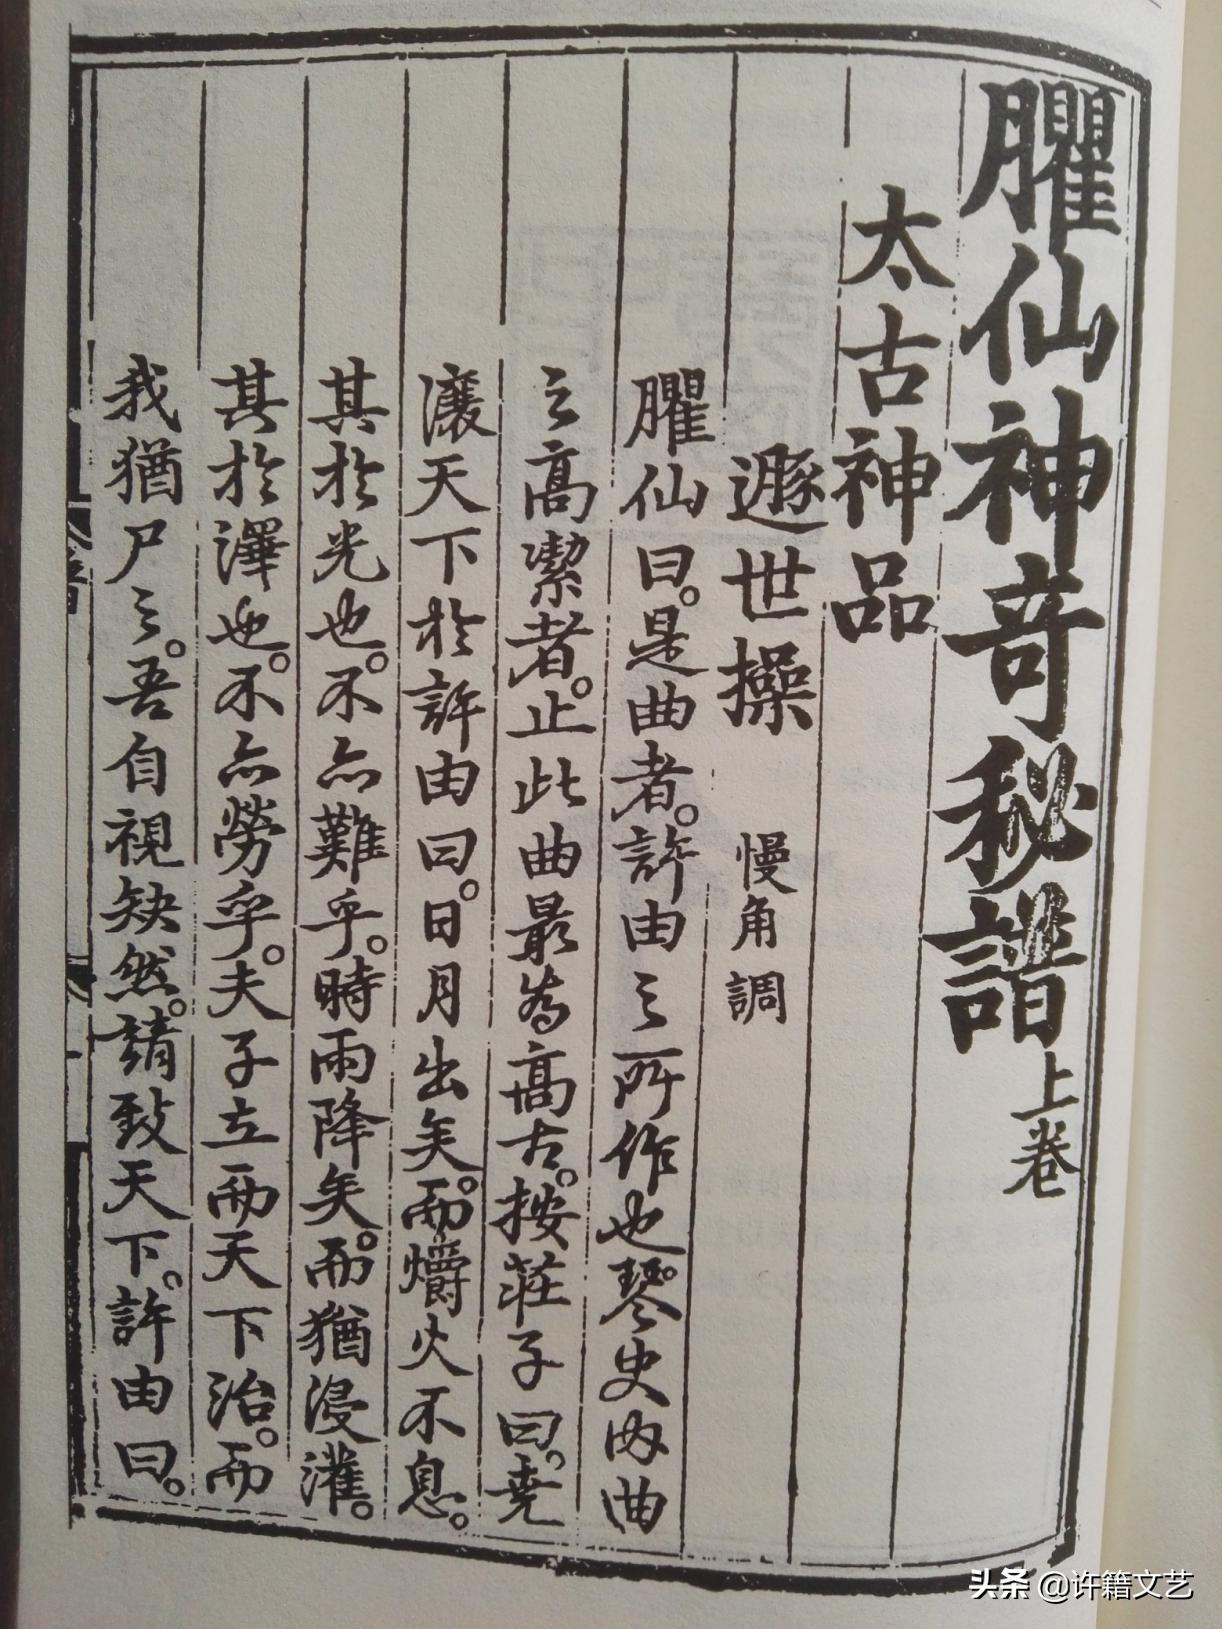 臞仙神奇秘譜上卷
太古神品
遯世操 慢角調
臞仙曰。是曲者。許由之所作也琴史內曲
之高潔者。止此曲最為高古。按莊子曰。堯
讓天下於許由曰。日月出矣。而爝火不息。
其於光也。不亦難乎。時雨降矣。而猶浸灌。
其於澤也。不亦勞乎。夫子立而天下治。而
我猶尸之。吾自視缺然。請致天下。許由曰。
头条 @许籍文艺